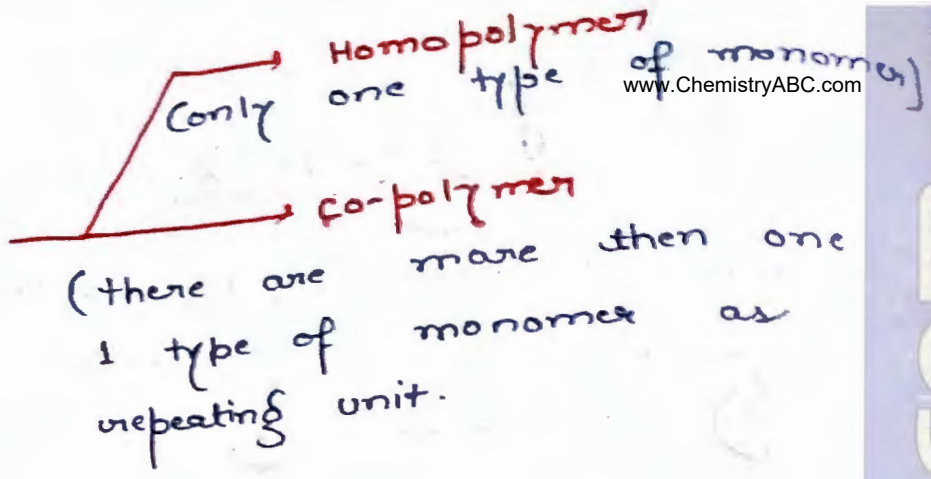 Homopolymer
(only one type of monomer)
www.ChemistryABC.com
co-polymer
(there are mare then one
1 type of monomer as
repeating unit.